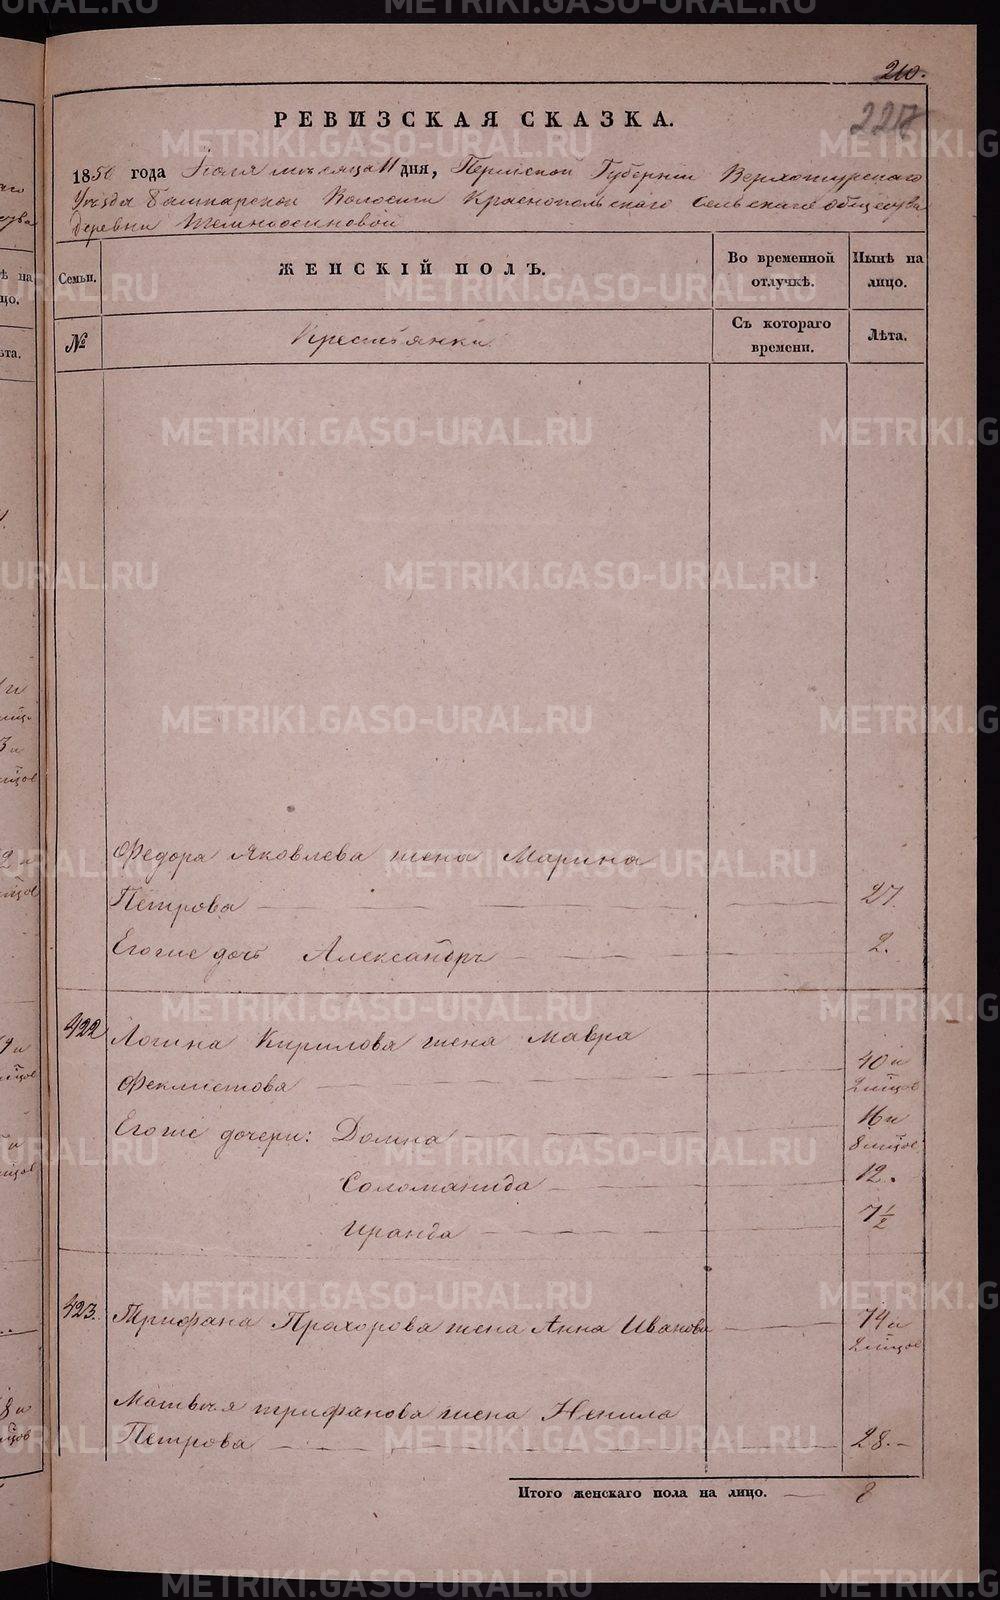 210.
РЕВИЗСКАЯ СКАЗКА.
1850 года Іюля мѣсяца 11 дня, Пермской Губерніи Верхотурскаго
Уѣзда Башкарской Волости Краснопольскаго сельскаго общества
Деревни Темноосиновой
Семьи.
ЖЕНСКІЙ ПОЛЪ.
Во временной отлучкѣ.
Нынѣ на лицо.
№
Крестьянки
Съ котораго времени.
Лѣта.
Федора Яковлева жена Марина
Петрова 27.
Егоже дочь Александра 2.
422 Логина Кирилова жена Мавра
Феклистова 40 и 2 мѣцов
Егоже дочери: Домна 16 и 8 мѣцов
Соломанида 12.
Ираида 7 1/2
423. Трифана Прохорова жена Анна Иванова 74 и 2 мѣцов
Матвѣя трифанова жена Ненила
Петрова 28.
Итого женскаго пола на лицо. 8
METRIKI.GASO-URAL.RU